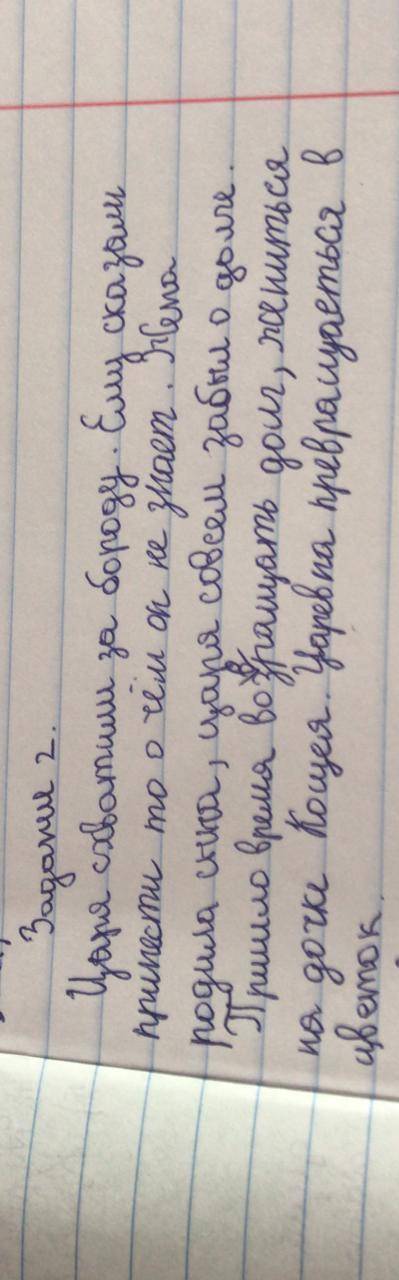 Задание 2.
Царя схватили за бороду. Ему сказали
принести то о чём он не знает. Жена
родила сына, царя совсем забыл о долге.
Пришло время возвращать долг, жениться
на дочке Кощея. Царевна превращаеться в
цветок.